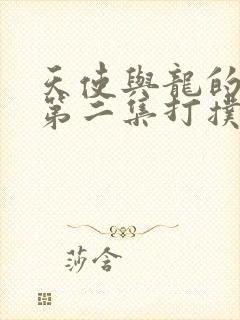 天使與龍的
第二集打撲
莎含